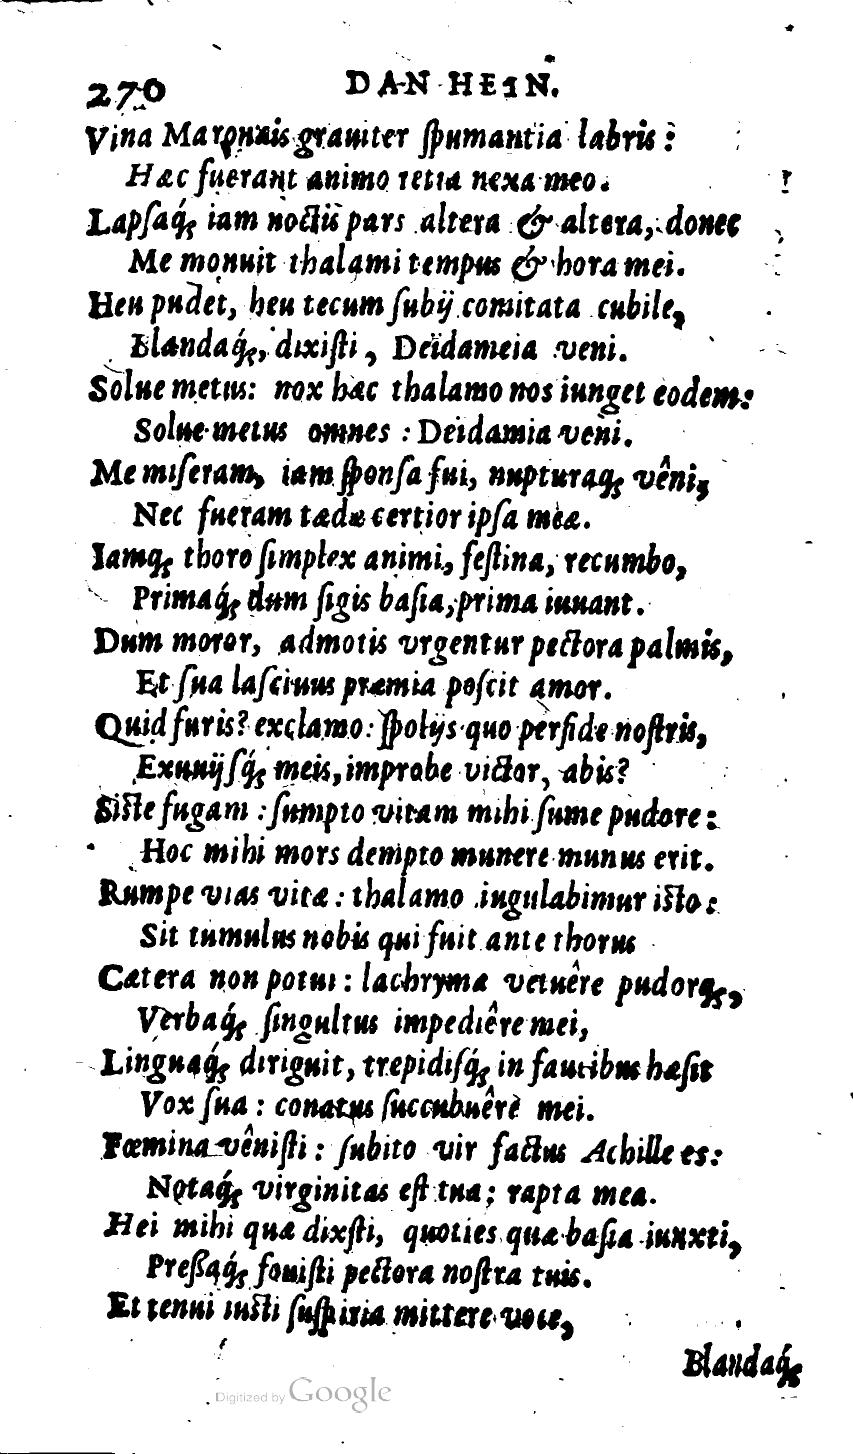 270 DAN HEIN.
Vina Maronais grauiter ſpumantia labris:
Hæc fuerant animo retia nexa meo.
Lapſaq́; iam noctis pars altera & altera, donec
Me monuit thalami tempus & hora mei.
Heu pudet, heu tecum ſubÿ comitata cubile,
Blandaq́;, dixiſti, Deïdameia veni.
Solue metus: nox hæc thalamo nos iunget eodem:
Solue metus omnes: Deidamia veni.
Me miſeram, iam ſponſa fui, nupturaq; vêni,
Nec fueram tædæ certior ipſa meæ.
Iamq; thoro ſimplex animi, feſtina, recumbo,
Primaq́; dum figis baſia, prima iuuant.
Dum moror, admotis vrgentur pectora palmis,
Et ſua laſciuus præmia poſcit amor.
Quid furis? exclamo: ſpolÿs quo perfide noſtris,
Exuuÿſq́; meis, improbe victor, abis?
Siſte fugam: ſumpto vitam mihi ſume pudore:
Hoc mihi mors dempto munere munus erit.
Rumpe vias vitæ: thalamo iugulabimur iſto:
Sit tumulus nobis qui fuit ante thorus
Cætera non potui: lachrymæ vetuêre pudorq;,
Verbaq́; ſingultus impediêre mei,
Linguaq́; diriguit, trepidiſq́; in faucibus hæſit
Vox ſua: conatus ſuccubuêre mei.
Fœmina vêniſti: ſubito vir factus Achille es:
Notaq́; virginitas eſt tua; rapta mea.
Hei mihi quæ dixſti, quoties quæ baſia iunxti,
Preßaq́; fouiſti pectora noſtra tuis.
Et tenui iuſti ſuſpiria mittere voce,
Blandaq́;
Digitized by Google